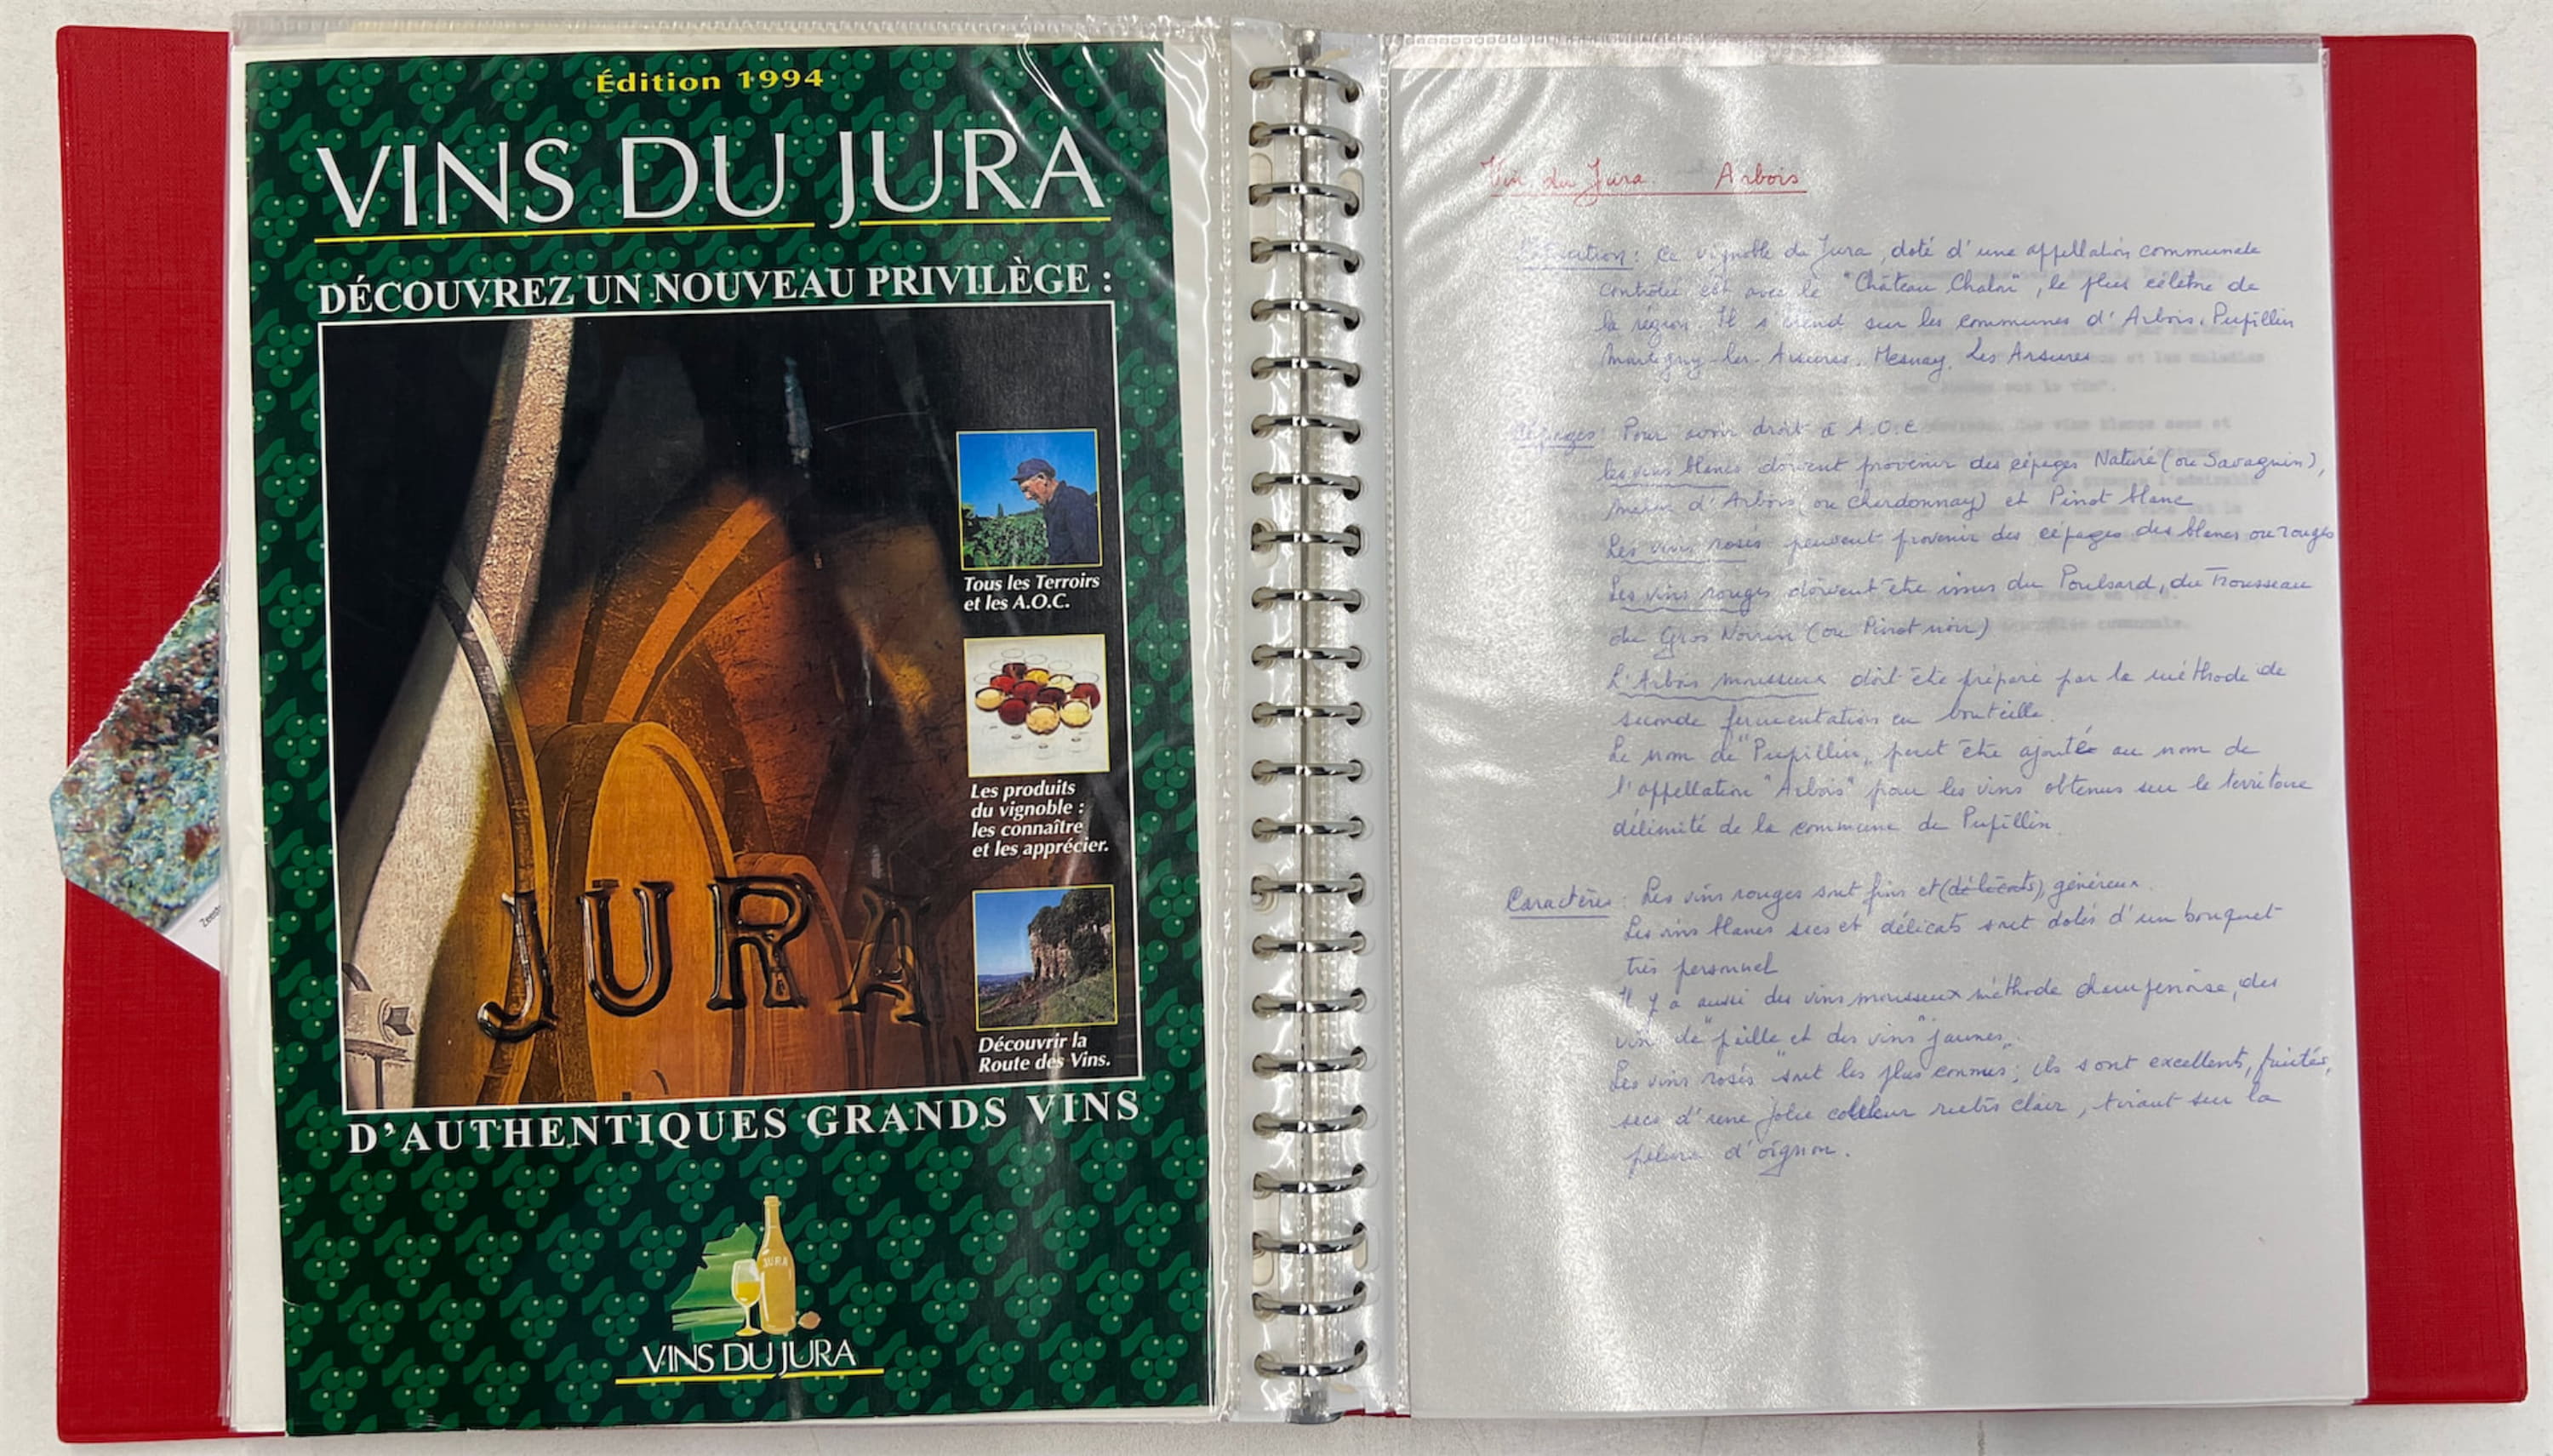 Édition 1994
VINS DU JURA
DÉCOUVREZ UN NOUVEAU PRIVILÈGE :
Tous les Terroirs
et les A.O.C.
Les produits
du vignoble :
les connaître
et les apprécier.
JURA
Découvrir la
Route des Vins.
D'AUTHENTIQUES GRANDS VINS
JURA
VINS DU JURA
Vin du Jura Arbois
: Ce vignoble du Jura, doté d'une appellation communale
contrôlée est avec le "Château Chalon", le plus célèbre de
la région. Il s'étend sur les communes d'Arbois, Pupillin
Mesnay, Les Arsures
Cépages : Pour avoir droit à A.O.C
les vins blancs doivent provenir des cépages Naturé (ou Savagnin),
d'Arbois (ou Chardonnay) et Pinot blanc
Les vins rosés peuvent provenir des cépages des blancs ou rouges
Les vins rouges doivent être issus du Poulsard, du Trousseau
du Gros Noirin (ou Pinot noir)
L'Arbois mousseux doit être préparé par la méthode de
seconde fermentation en bouteille.
Le nom de "Pupillin" peut être ajouté au nom de
l'appellation "Arbois" pour les vins obtenus sur le territoire
délimité de la commune de Pupillin.
Caractères : Les vins rouges sont fins et (délicats), généreux.
Les vins blancs secs et délicats sont dotés d'un bouquet
très personnel
Il y a aussi des vins mousseux méthode champenoise, des
vin de "paille et des vins "jaunes".
Les vins rosés sont les plus connus ; ils sont excellents, fruités,
secs d'une jolie couleur rubis clair, tirant sur la
pelure d'oignon.